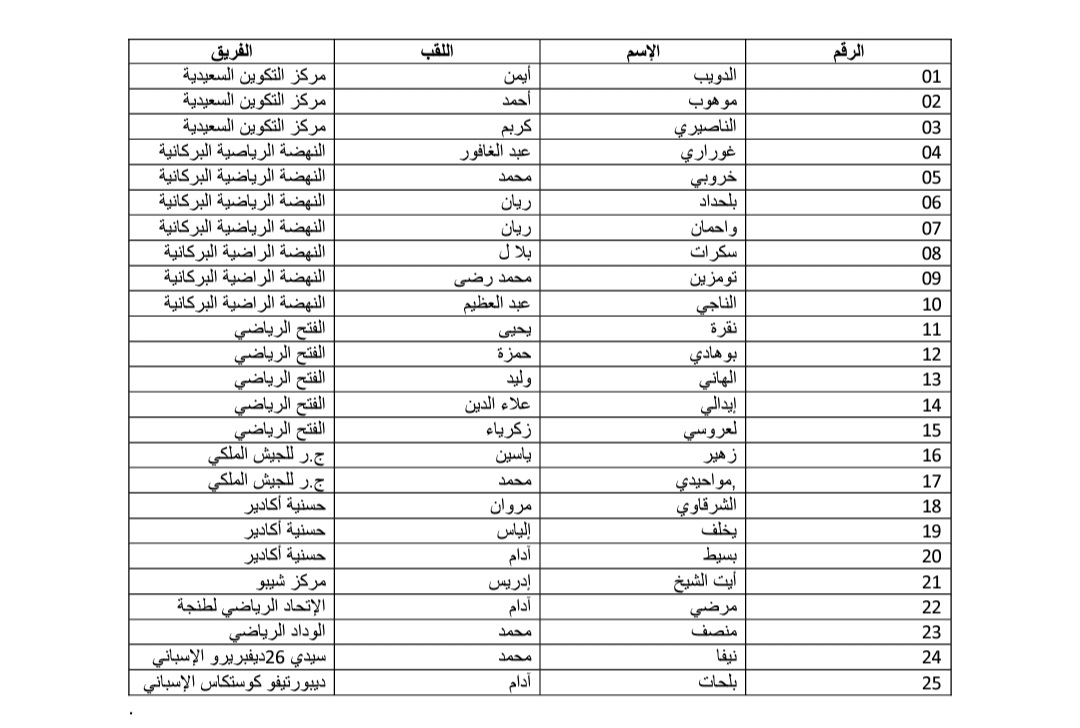 الرقم الإسم اللقب الفريق
01 الدويب أيمن مركز التكوين السعيدية
02 موهوب أحمد مركز التكوين السعيدية
03 الناصيري كريم مركز التكوين السعيدية
04 غوراري عبد الغافور النهضة الرياضية البركانية
05 خروبي محمد النهضة الرياضية البركانية
06 بلحداد ريان النهضة الرياضية البركانية
07 واحمان ريان النهضة الرياضية البركانية
08 سكرات بلال النهضة الراضية البركانية
09 تومزين محمد رضى النهضة الراضية البركانية
10 الناجي عبد العظيم النهضة الراضية البركانية
11 نقرة يحيى الفتح الرياضي
12 بوهادي حمزة الفتح الرياضي
13 الهاني وليد الفتح الرياضي
14 إيدالي علاء الدين الفتح الرياضي
15 لعروسي زكرياء الفتح الرياضي
16 زهير ياسين ج.ر للجيش الملكي
17 ,مواحيدي محمد ج.ر للجيش الملكي
18 الشرقاوي مروان حسنية أكادير
19 يخلف إلياس حسنية أكادير
20 بسيط آدام حسنية أكادير
21 أيت الشيخ إدريس مركز شيبو
22 مرضي آدام الإتحاد الرياضي لطنجة
23 منصف محمد الوداد الرياضي
24 نيفا محمد سيدي 26ديفبريرو الإسباني
25 بلحات آدام ديبورتيفو كوستكاس الإسباني
.